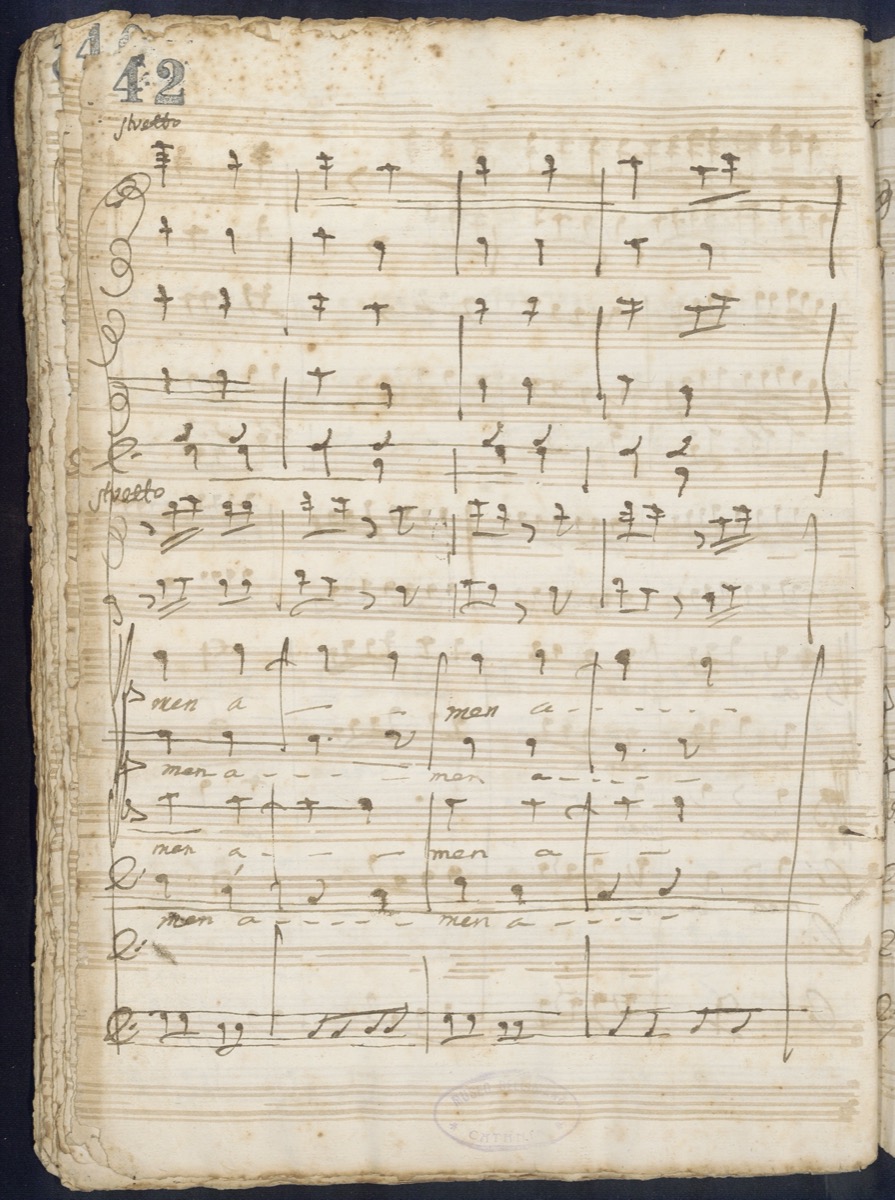 42
stretto
stretto
men a - - men a - - - - - -
men a - - - - - men a - - - - -
men a - - - men a - -
men a - - - - - men a - - - - - -